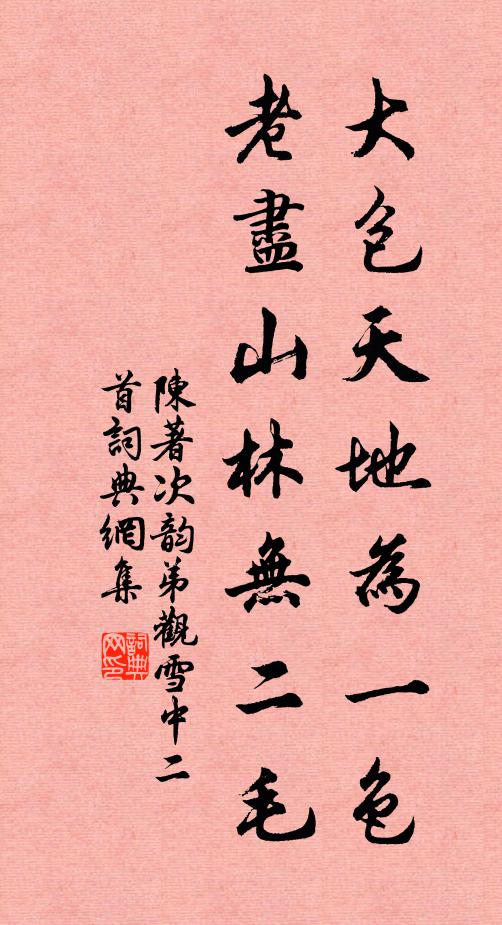 大包天地為一色
老盡山林無二毛
陳著次韵弟觀雪中二
首詞典網集
詞典
网印